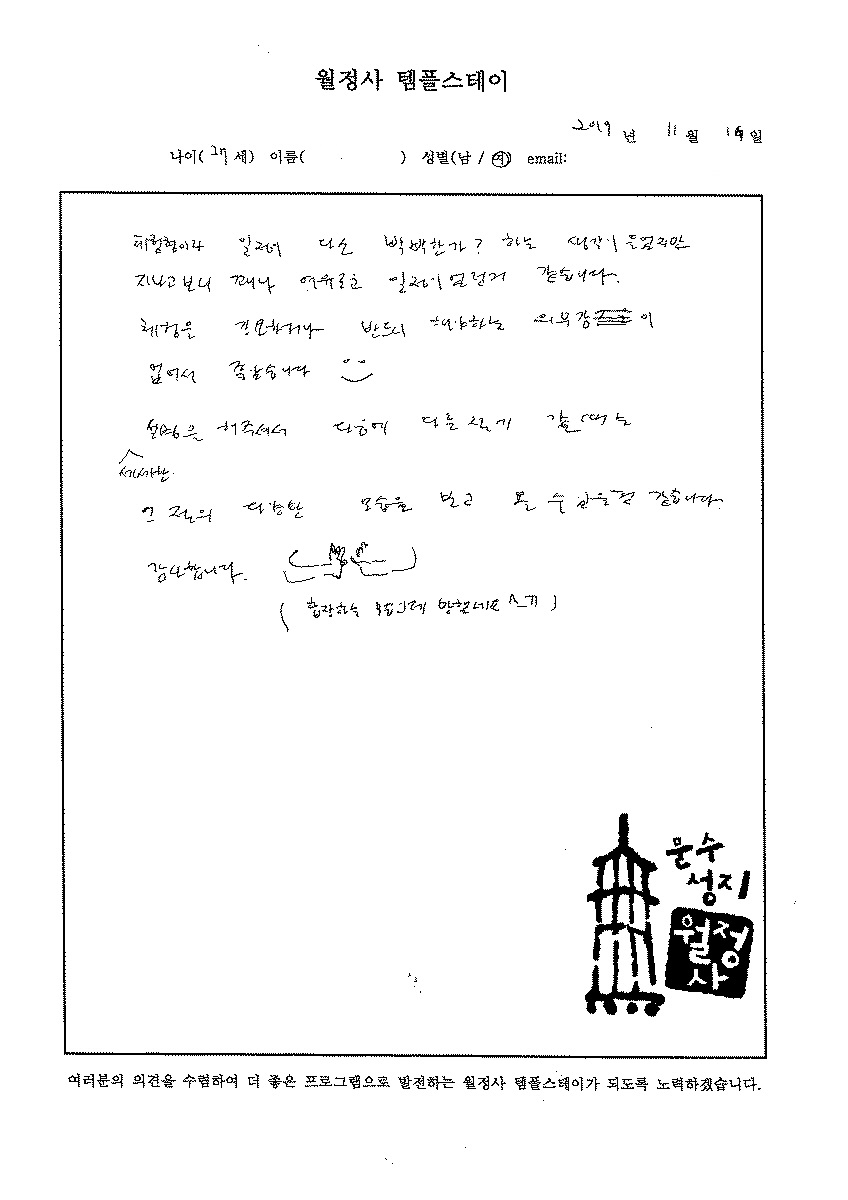 월정사 템플스테이
2019 년 11 월 14 일
나이( 27 세) 이름( ) 성별(남 / 여) email:
체험형이라 일정이 다소 빡빡한가? 하는 생각이 들었지만
지나고보니 꽤나 여유로운 일정이었던거 같습니다.
체험을 강요하거나 반드시 해야하는 의무감이
없어서 좋았습니다
설명을 해주셔서 다음에 다른 절에 갈 때는
세세한
그 절의 다양한 모습을 보고 올 수 있을것 같습니다.
감사합니다.
( 합장하는 )
문수
성지
월정
사
여러분의 의견을 수렴하여 더 좋은 프로그램으로 발전하는 월정사 템플스테이가 되도록 노력하겠습니다.